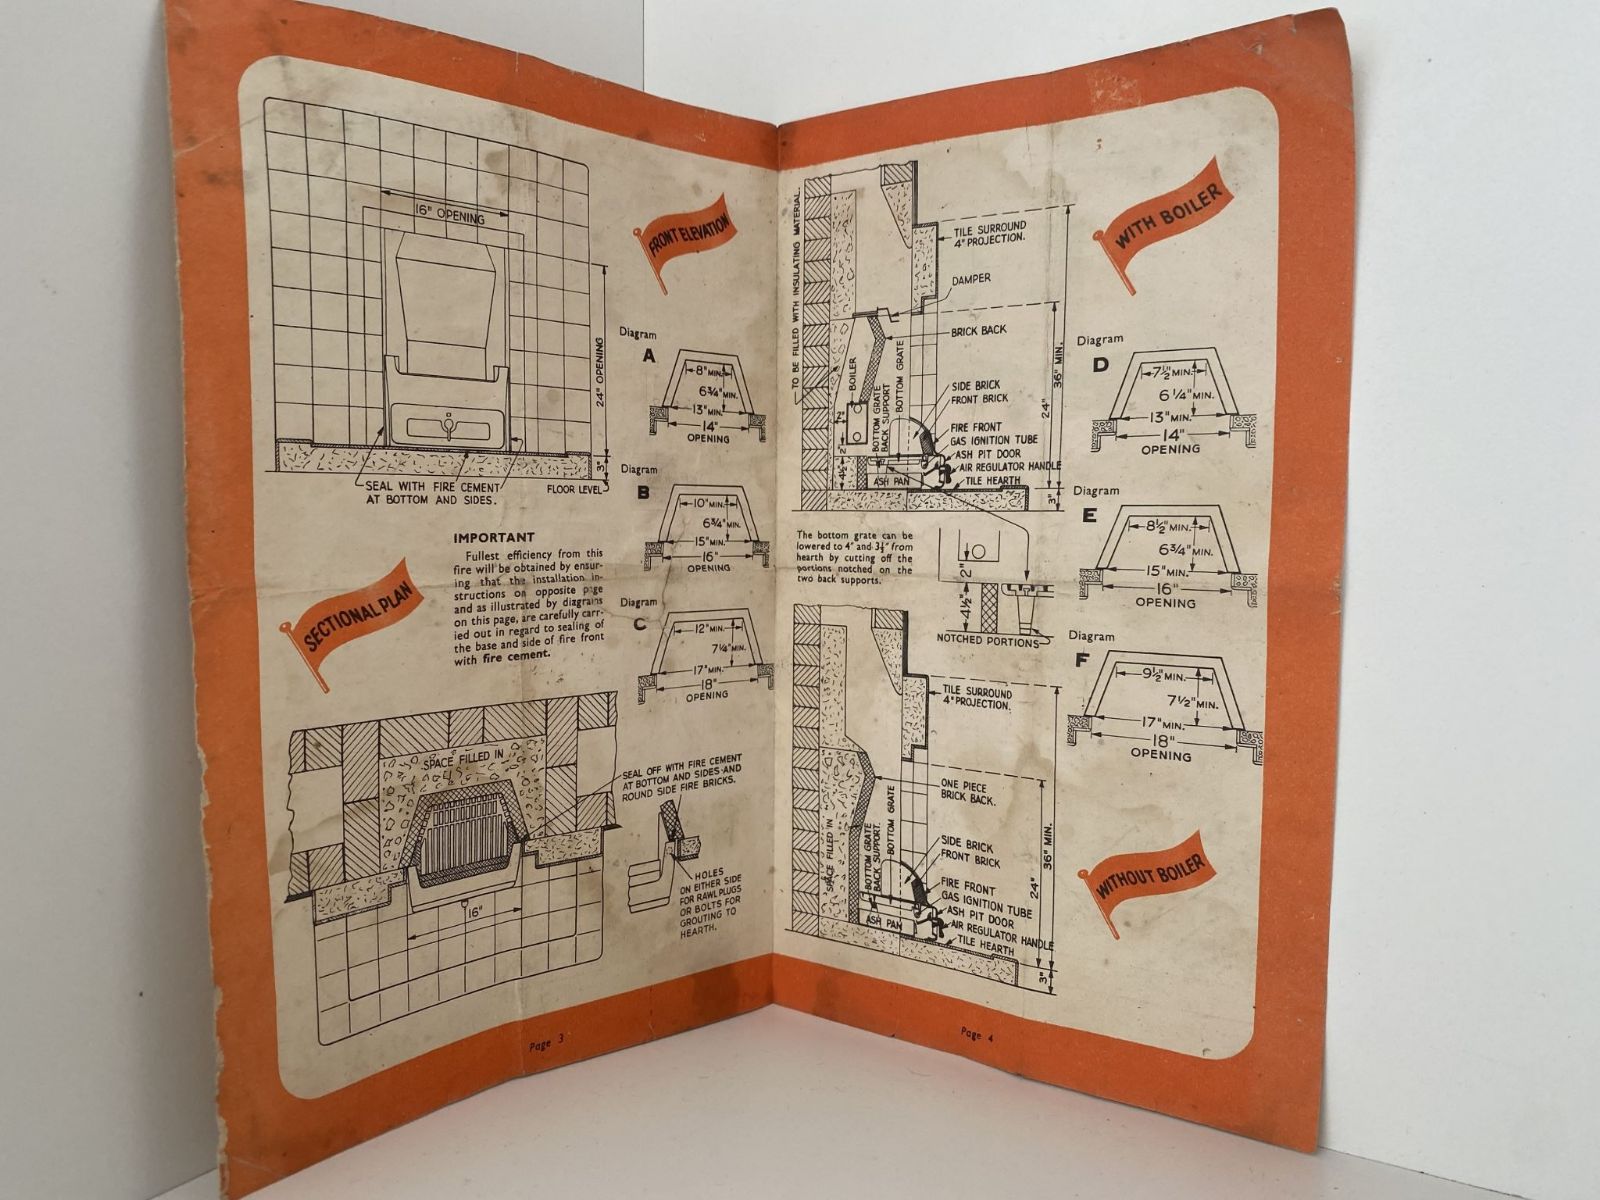 16" OPENING
FRONT ELEVATION
24" OPENING
3"
SEAL WITH FIRE CEMENT
AT BOTTOM AND SIDES.
FLOOR LEVEL
Diagram
A
8" MIN.
6¾" MIN.
13" MIN.
14"
OPENING
Diagram
B
10" MIN.
6¾" MIN.
15" MIN.
16"
OPENING
Diagram
C
12" MIN.
7¼" MIN.
17" MIN.
18"
OPENING
IMPORTANT
Fullest efficiency from this
fire will be obtained by ensur-
ing that the installation in-
structions on opposite page
and as illustrated by diagrams
on this page, are carefully carr-
ied out in regard to sealing of
the base and side of fire front
with fire cement.
SECTIONAL PLAN
SPACE FILLED IN
SEAL OFF WITH FIRE CEMENT
AT BOTTOM AND SIDES-AND
ROUND SIDE FIRE BRICKS.
HOLES
ON EITHER SIDE
FOR RAWLPLUGS
OR BOLTS FOR
GROUTING TO
HEARTH.
16"
Page 3
TO BE FILLED WITH INSULATING MATERIAL.
WITH BOILER
TILE SURROUND
4" PROJECTION.
DAMPER
BRICK BACK
BOILER
BOTTOM GRATE
BACK SUPPORT
BOTTOM GRATE
SIDE BRICK
FRONT BRICK
FIRE FRONT
GAS IGNITION TUBE
ASH PIT DOOR
AIR REGULATOR HANDLE
TILE HEARTH
ASH PAN
2"
2"
4½"
24"
36" MIN.
3"
The bottom grate can be
lowered to 4" and 3½" from
hearth by cutting off the
portions notched on the
two back supports.
2"
4½"
NOTCHED PORTIONS
Diagram
D
7½" MIN.
6¼" MIN.
13" MIN.
14"
OPENING
Diagram
E
8½" MIN.
6¾" MIN.
15" MIN.
16"
OPENING
Diagram
F
9½" MIN.
7½" MIN.
17" MIN.
18"
OPENING
TILE SURROUND
4" PROJECTION.
ONE PIECE
BRICK BACK.
SPACE FILLED IN
BOTTOM GRATE
BACK SUPPORT.
BOTTOM GRATE
SIDE BRICK
FRONT BRICK
FIRE FRONT
GAS IGNITION TUBE
ASH PIT DOOR
AIR REGULATOR HANDLE
TILE HEARTH
ASH PAN
24"
36" MIN.
3"
WITHOUT BOILER
Page 4